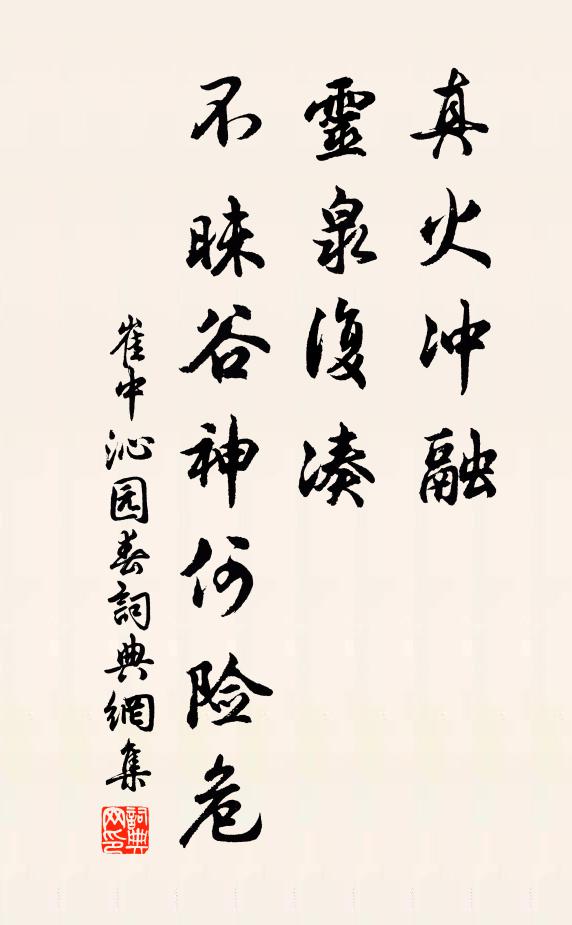 真火冲融
靈泉復凑
不昧谷神何险危
崔中沁园春詞典網集
詞典网印